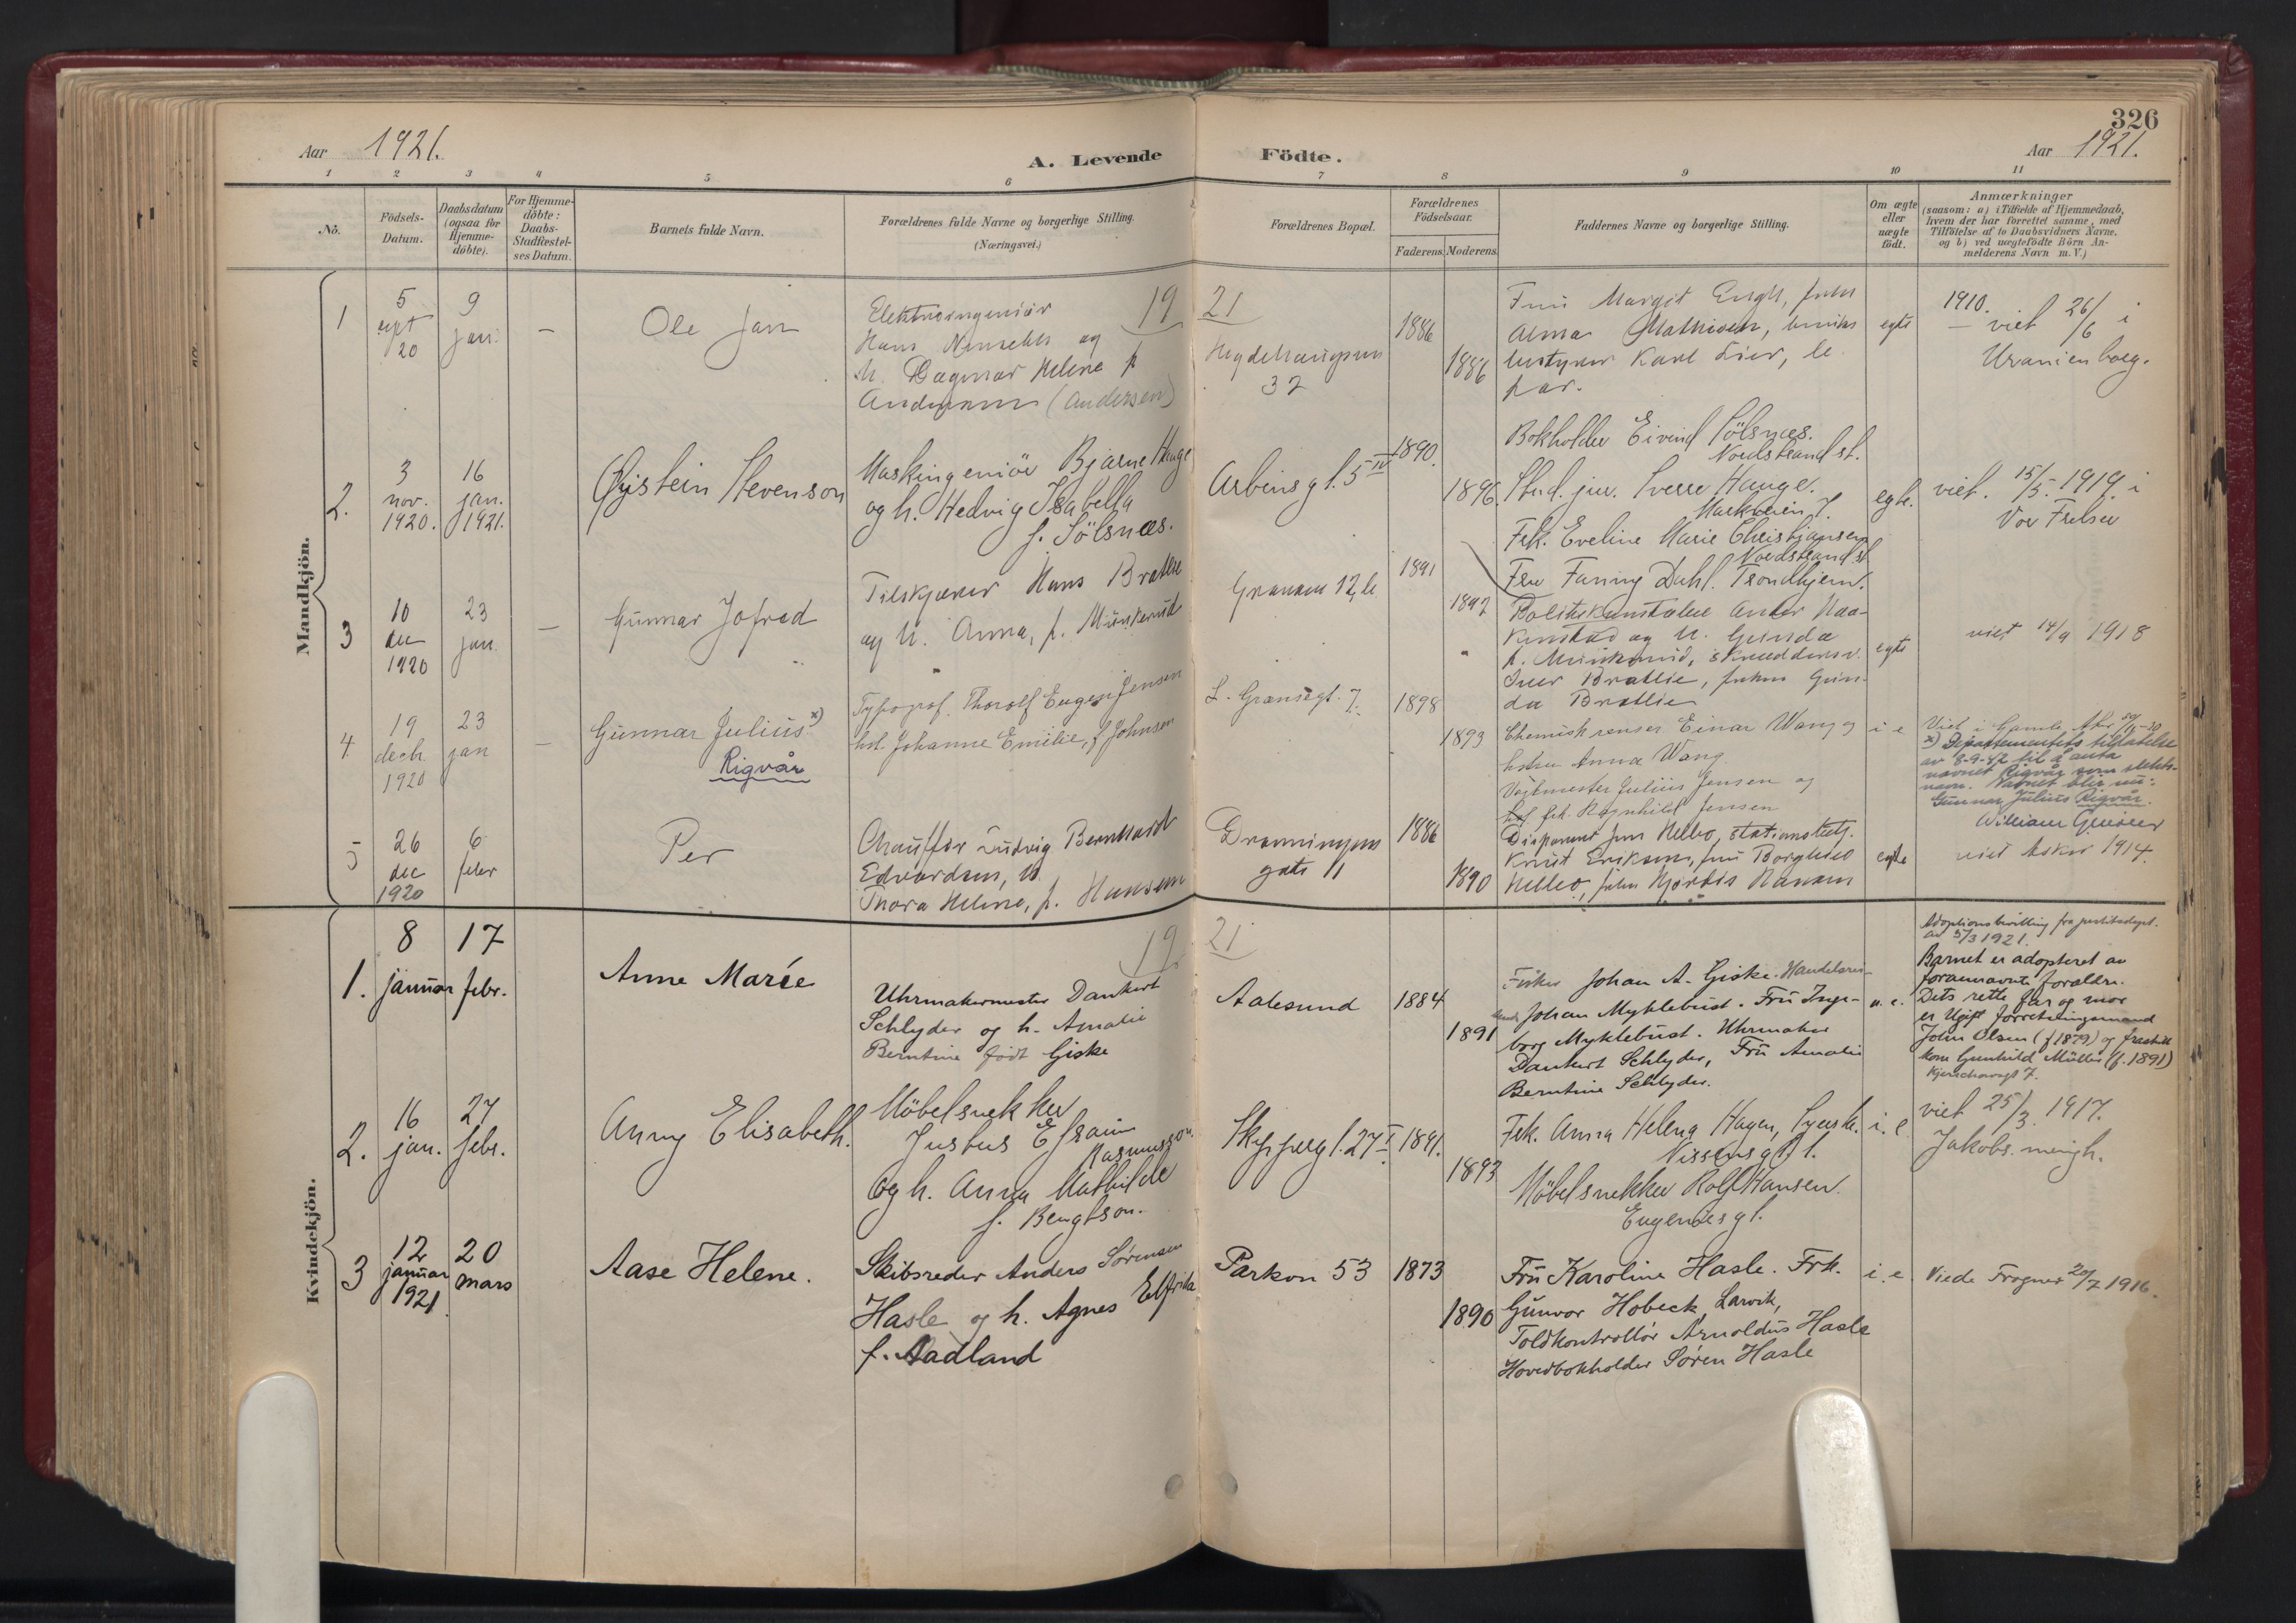 326
Aar 1921.
A. Levende Födte.
Aar 1921.
1 2 3 4 5 6 7 8 9 10 11
No.
Födsels-
Datum.
Daabsdatum
(ogsaa for
Hjemme-
döbte).
For Hjemme-
döbte:
Daabs-
Stadfæstel-
ses Datum.
Barnets fulde Navn.
Forældrenes fulde Navne og borgerlige Stilling.
(Næringsvei.)
Forældrenes Bopæl.
Forældrenes
Födselsaar.
Faderens. Moderens.
Faddernes Navne og borgerlige Stilling.
Om ægte
eller
uægte
födt.
Anmærkninger
(saasom: a) i Tilfælde af Hjemmedaab,
hvem der har forrettet samme, med
Tilföielse af to Daabsvidners Navne.
og b) ved uægtefödte Börn An-
melderens Navn m. V.)
Mandkjön.
19 21
1
5
sept
20
9
jan.
—
Ole Jan
Elektroingeniör
Hans og
h. Dagmar Helene f.
Andersen (Andersen)
Hegdehaugsvn
32
1886
1886
Fru Margit Engh, frøken
Alma Mathisen,
bestyrer Karl Lier, le
par.
egte
1910.
— viet 26/6 i
Uranienborg.
2.
3
nov.
1920.
16
jan.
1921.
Øystein Stevenson
Maskingeniör Bjarne Hauge
og h. Hedvig Isabella
f. Sölsnæs.
Arbinsgt. 5 IV
1890.
1896.
Bokholder Eivind Sölsnæs.
Nordstrand st.
Stud. jur. Sverre Hauge.
Markveien 7.
Frk. Eveline Marie Christiansen
Nordstrand st.
Fru Fanny Dahl. Trondhjem.
egte.
viet. 15/5. 1919. i
Vor Frelser
3
10
dec
1920
23
jan.
—
Gunnar Jofred
Tilskjærer Hans Bratlie
og h. Anna, f. Munkerud
Granam 12, le
1891
1892
Politikonstabel
og h. Gunda
f. Munkerud,
Iver Bratlie, frøken Gun-
da Bratlie
egte
viet 14/9 1918
4
19
decb.
1920
23
jan
—
Gunnar Julius x)
Rigvår
Typograf. Thorolf Eugen Jensen
hst. Johanne Emilie, f. Johnsen
L. Grensegt. 7.
1898
1893
Chemiskrenser Einar Wang og
hstru Anna Wang
Julius Jensen og
frk. Ragnhild Jensen
i e
Viet i Gamle Aker
x) Departementets tillatelse
av 8-9-42 til å anta
navnet Rigvår som slekts-
navn. Navnet blir nu:
Gunnar Julius Rigvår.
5
26
dec
1920
6
febr
Per
Chauffør Ludvig Bernhard
Edvardsen, h.
Thora Helene, f. Hansen
Dronningens
gate 11
1886
1890
Disponent
Knut Eriksen, fru Borghild
frøken Hjørdis Hansen
egte
viet Asker 1914.
Kvindekjön.
19 21
1.
8
januar
17
febr.
Anne Marie
Uhrmakermester Dankert
Schlyder og h. Amalie
Berntine født Giske
Aalesund
1884
1891
Fisker Johan A. Giske. Handelsrei-
sende Johan Myklebust. Fru Inge-
borg Myklebust. Uhrmaker
Dankert Schlyder, Fru Amalie
Berntine Schlyder.
u. e.
Adoptionsbevilling fra justitsdept.
av 5/3 1921.
Barnet er adopteret av
forannævnte forældre.
Dets rette far og mor
er Ugift forretningsmand
John Olsen (f 1879) og fraskilt
kone Gunhild Müller (f. 1891)
2.
16
jan.
27
febr.
Anny Elisabeth.
Möbelsnekker
Justus Efraim
Rasmusson
og h. Anna Mathilde
f. Bengtson.
Skippergt. 27 I
1891.
1893
Frk. Anna Helena Hagen,
Nissensgt 1.
Möbelsnekker Rolf Hansen.
Eugeniesgt.
i. e
viet 25/3. 1917.
Jakobs. menigh.
3
12
januar
1921.
20
mars
Aase Helene.
Skibsreder Anders Sørensen
Hasle og h. Agnes Elfrida
f. Aadland
Parkvn 53
1873
1890
Fru Karoline Hasle. Frk.
Gunvor Hobeck, Larvik,
Toldkontrollør Arnoldus Hasle
Hovedbokholder Søren Hasle
i. e.
Viede Frogner 20/7 1916.